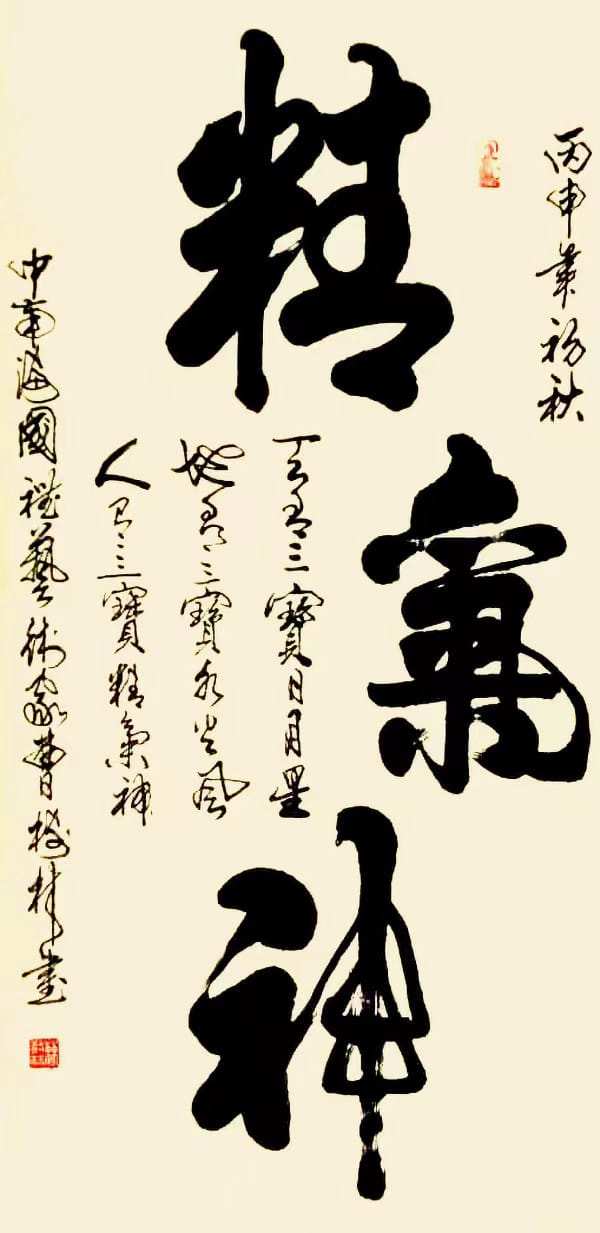 丙申年初秋
精氣神
天有三寶日月星
地有三寶水火風
人有三寶精氣神
中南海國禮藝術家曹樹林書